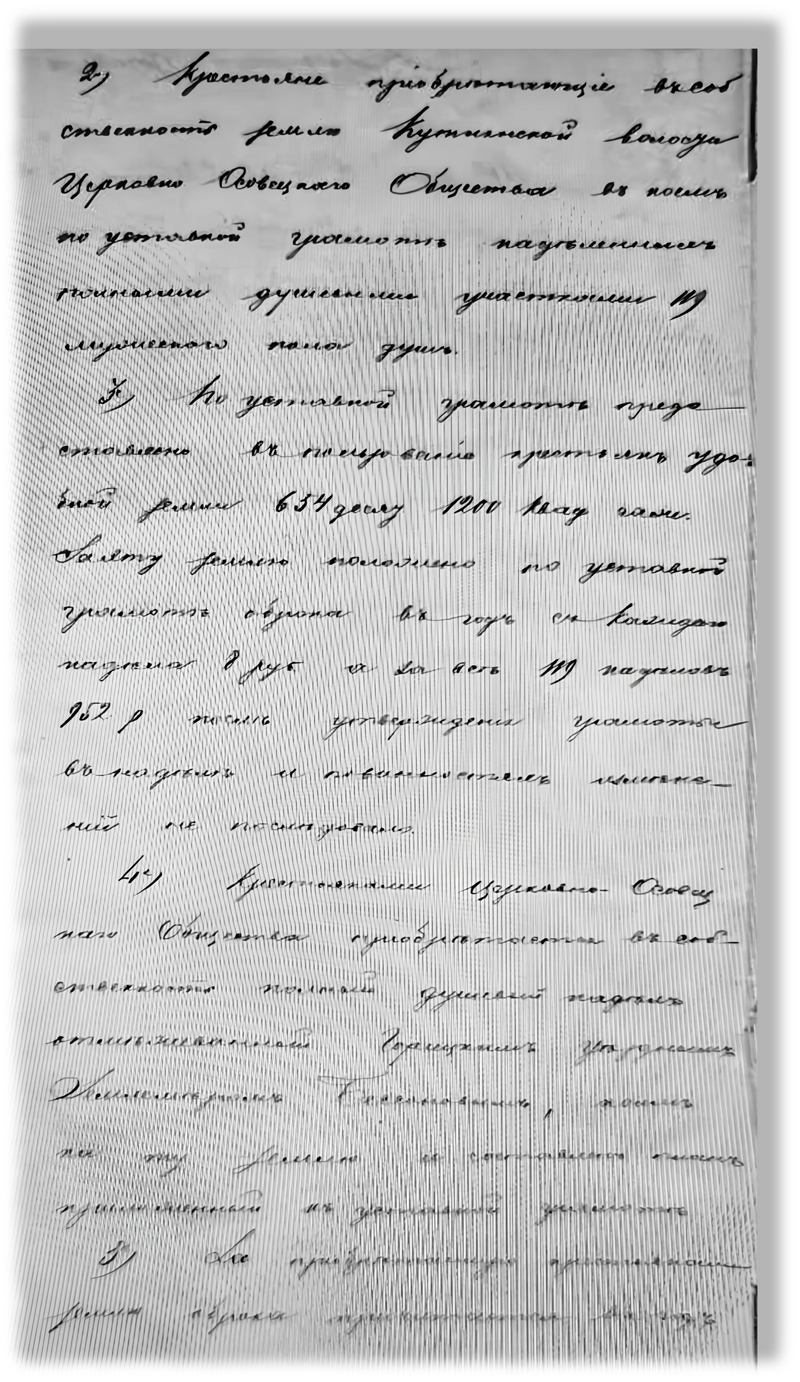 2) Крестьяне приобретающіе въ соб
ственность землю Купчинской волости
Церковно Осовецкаго Общества въ коемъ
по уставной грамотѣ надѣленныхъ
полными душевыми участками 119
мужескаго пола душъ.
3) По уставной грамотѣ предо
ставлено въ пользованіе крестьянъ удо-
бной земли 654 десят 1200 квад саж.
За эту землю положено по уставной
грамотѣ оброка въ годъ съ каждаго
надѣла 8 руб а за всѣ 119 надѣловъ
952 р послѣ утвержденія грамоты
въ надѣлѣ и повинностяхъ измѣне-
ній не послѣдовало.
4) Крестьянами Церковно-Осовец
каго Общества пріобрѣтается въ соб-
ственность полный душевый надѣлъ
отмѣжеванный Горицкимъ уѣзднымъ
Землемѣромъ коимъ
на ту землю и составленъ планъ
приложенный къ уставной грамотѣ
5) За пріобрѣтаемую крестьянами
землю оброка причитается въ годъ